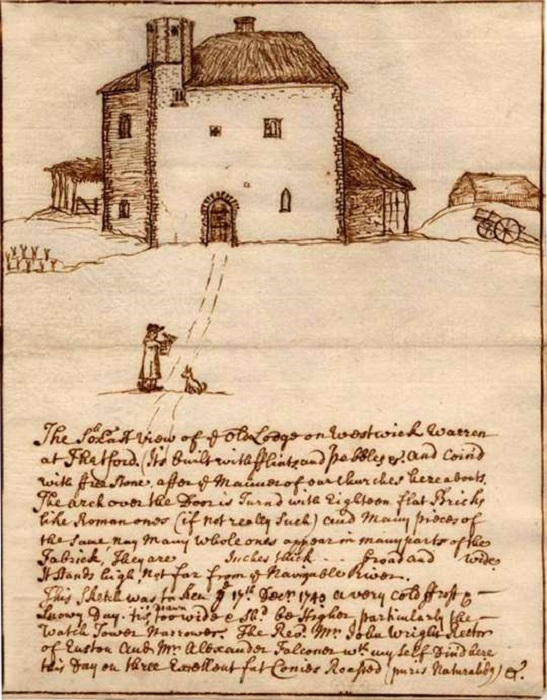 The So: East View of ye Old Lodge on Westwick Warren
at Thetford. (Its built with fflints and pebbles &c. and Coind
with ffreeStone, after ye Manner of our churches hereabouts.
The arch over the Door is Turnd with Eighteen flat Bricks
like Roman ones (if not really such) and Many pieces of
the Same nay Many whole ones appear in many parts of the
Fabrick, They are Inches thick - - broad and wide
It stands high, Not far from ye Navigable River.
This Sketch was taken ye 17th. Decr. 1740 a very cold ffrost &
Snowy Day. tis drawn too wide & Shd. be Higher particularly the
Watch Tower Narrower. The Revd. Mr. John Wright Rector
of Euston and Mr. Alexander Falconer wth. my Self Dind here
this Day on three Excellent fat Conies Roasted (puris Naturalibs) &c.